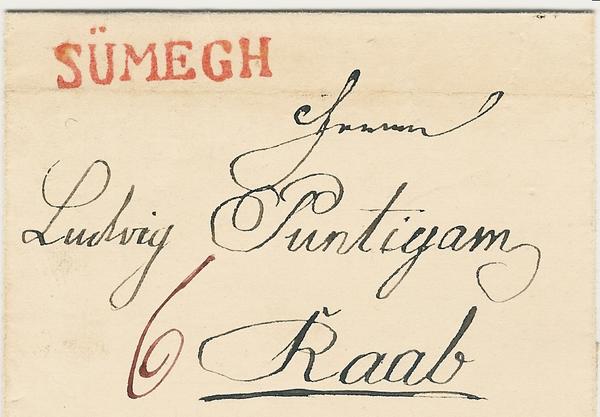 SÜMEGH
Herrn
Ludwig Puntigam
6
Raab